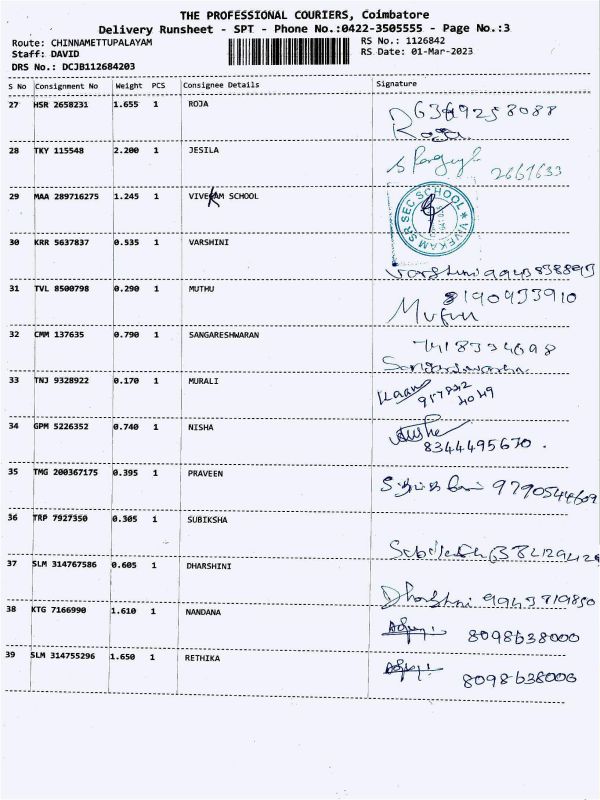 THE PROFESSIONAL COURIERS, Coimbatore
Delivery Runsheet - SPT - Phone No.:0422-3505555 - Page No.:3
Route: CHINNAMETTUPALAYAM
RS No.: 1126842
Staff: DAVID
RS Date: 01-Mar-2023
DRS No.: DCJB112684203
S No Consignment No Weight PCS Consignee Details Signature
27 HSR 2658231 1.655 1 ROJA
Roja
28 TKY 115548 2.200 1 JESILA
2661633
29 MAA 289716275 1.245 1 VIVEKAM SCHOOL
VIVEKAM SR SEC SCHOOL
30 KRR 5637837 0.535 1 VARSHINI
Varshini 9943838893
31 TVL 8500798 0.290 1 MUTHU
8190933910
32 CMM 137635 0.790 1 SANGARESHWARAN
7418334698
33 TNJ 9328922 0.170 1 MURALI
34 GPM 5226352 0.740 1 NISHA
8344495670.
35 TMG 200367175 0.395 1 PRAVEEN
36 TRP 7927350 0.305 1 SUBIKSHA
37 SLM 314767586 0.605 1 DHARSHINI
Dharshini 9943719850
38 KTG 7166990 1.610 1 NANDANA
8098638000
39 SLM 314755296 1.650 1 RETHIKA
8098638000